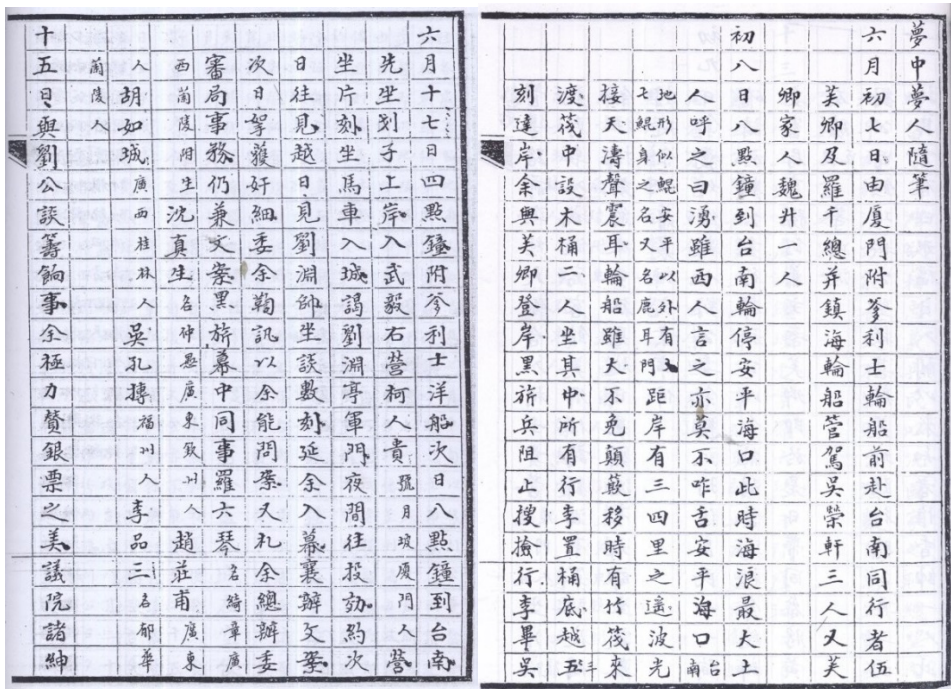 夢中夢人隨筆
六月初七日由厦門附爹利士輪船前赴台南同行者伍
芙卿及羅千總并鎮海輪船管駕吳榮軒三人又芙
卿家人魏升一人
初八日八點鐘到台南輪停安平海口此時海浪最大土
人呼之曰湧雖西人言之亦莫不咋舌安平海口台南
地形似鯤安平以外有七鯤身之名又名鹿耳門距岸有三四里之遙波光
接天濤聲震耳輪船雖大不免顛簸移時有竹筏來
渡筏中設木桶二人坐其中所有行李置桶底越三五
刻達岸余與芙卿登岸黑旂兵阻止搜撿行李畢吳
六月十七日四點鐘附爹利士洋船次日八點鐘到台南
先坐划子上岸入武毅右營柯人貴號月坡厦門人營
坐片刻坐馬車入城謁劉淵亭軍門夜間往投効約次
日往見越日見劉淵帥坐談數刻延余入幕襄辦文案
次日拏獲奸細委余鞫訊以余能問案又札余總辦委
審局事務仍兼文案黑旂幕中同事羅六琴名綺章廣
西蘭陵附生沈真生名仲愚廣東欽州人趙莊甫廣東
人胡如城廣西桂林人吳孔摶福州人李品三名郁華
蘭陵人
十五日與劉公談籌餉事余極力贊銀票之美議院諸紳